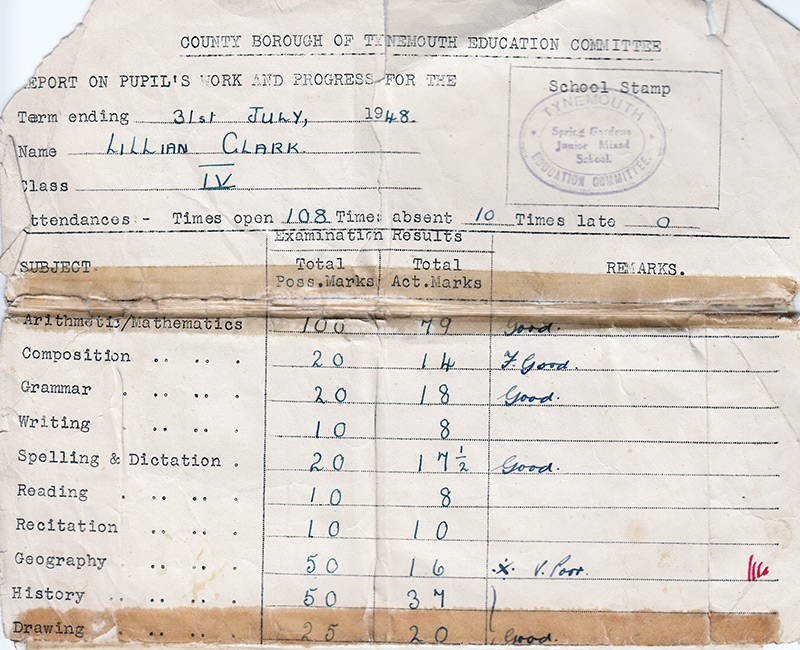 COUNTY BOROUGH OF TYNEMOUTH EDUCATION COMMITTEE
EPORT ON PUPIL'S WORK AND PROGRESS FOR THE
School Stamp
Term ending 31st JULY, 1948.
TYNEMOUTH
Spring Gardens
Junior Mixed
School.
EDUCATION COMMITTEE.
Name LILLIAN CLARK.
Class IV
ttendances:- Times open 108 Times absent 10 Times late 0
Examination Results
SUBJECT. Total Total REMARKS.
Poss.Marks Act.Marks
Arithmetic/Mathematics 100 79 Good.
Composition .. .. . 20 14 F. Good.
Grammar . .. .. . 20 18 Good.
Writing . .. .. . 10 8
Spelling & Dictation . 20 17½ Good.
Reading . .. .. . 10 8
Recitation .. .. . 10 10
Geography .. .. . 50 16 x. V. Poor.
History .. .. .. . 50 37
Drawing . .. .. . 25 20 Good.